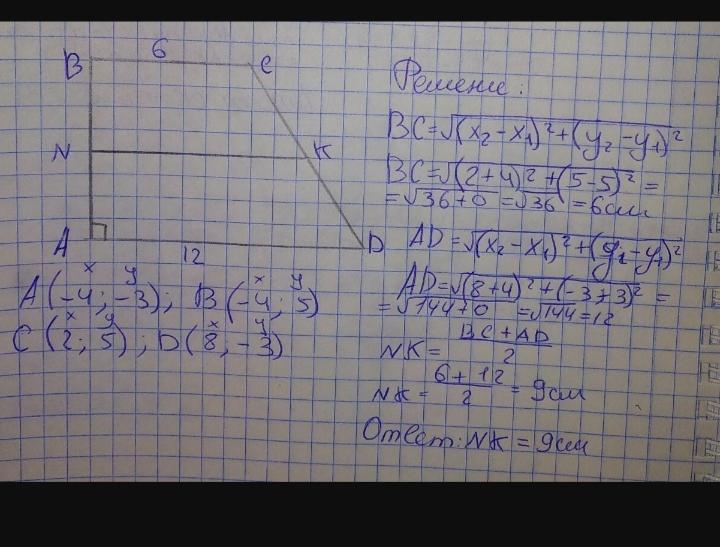 B 6 C
N K
A 12 D
x y x y
A(-4; -3); B(-4; 5)
x y x y
C (2; 5); D(8; -3)
Решение:
BC=√(x₂-x₁)²+(y₂-y₁)²
BC=√(2+4)²+(5-5)² =
=√36+0 =√36 =6см
AD=√(x₂-x₁)²+(y₂-y₁)²
AD=√(8+4)²+(-3+3)² =
=√144+0 =√144=12
NK= BC+AD / 2
NK= 6+12 / 2 = 9см
Ответ: NK = 9см